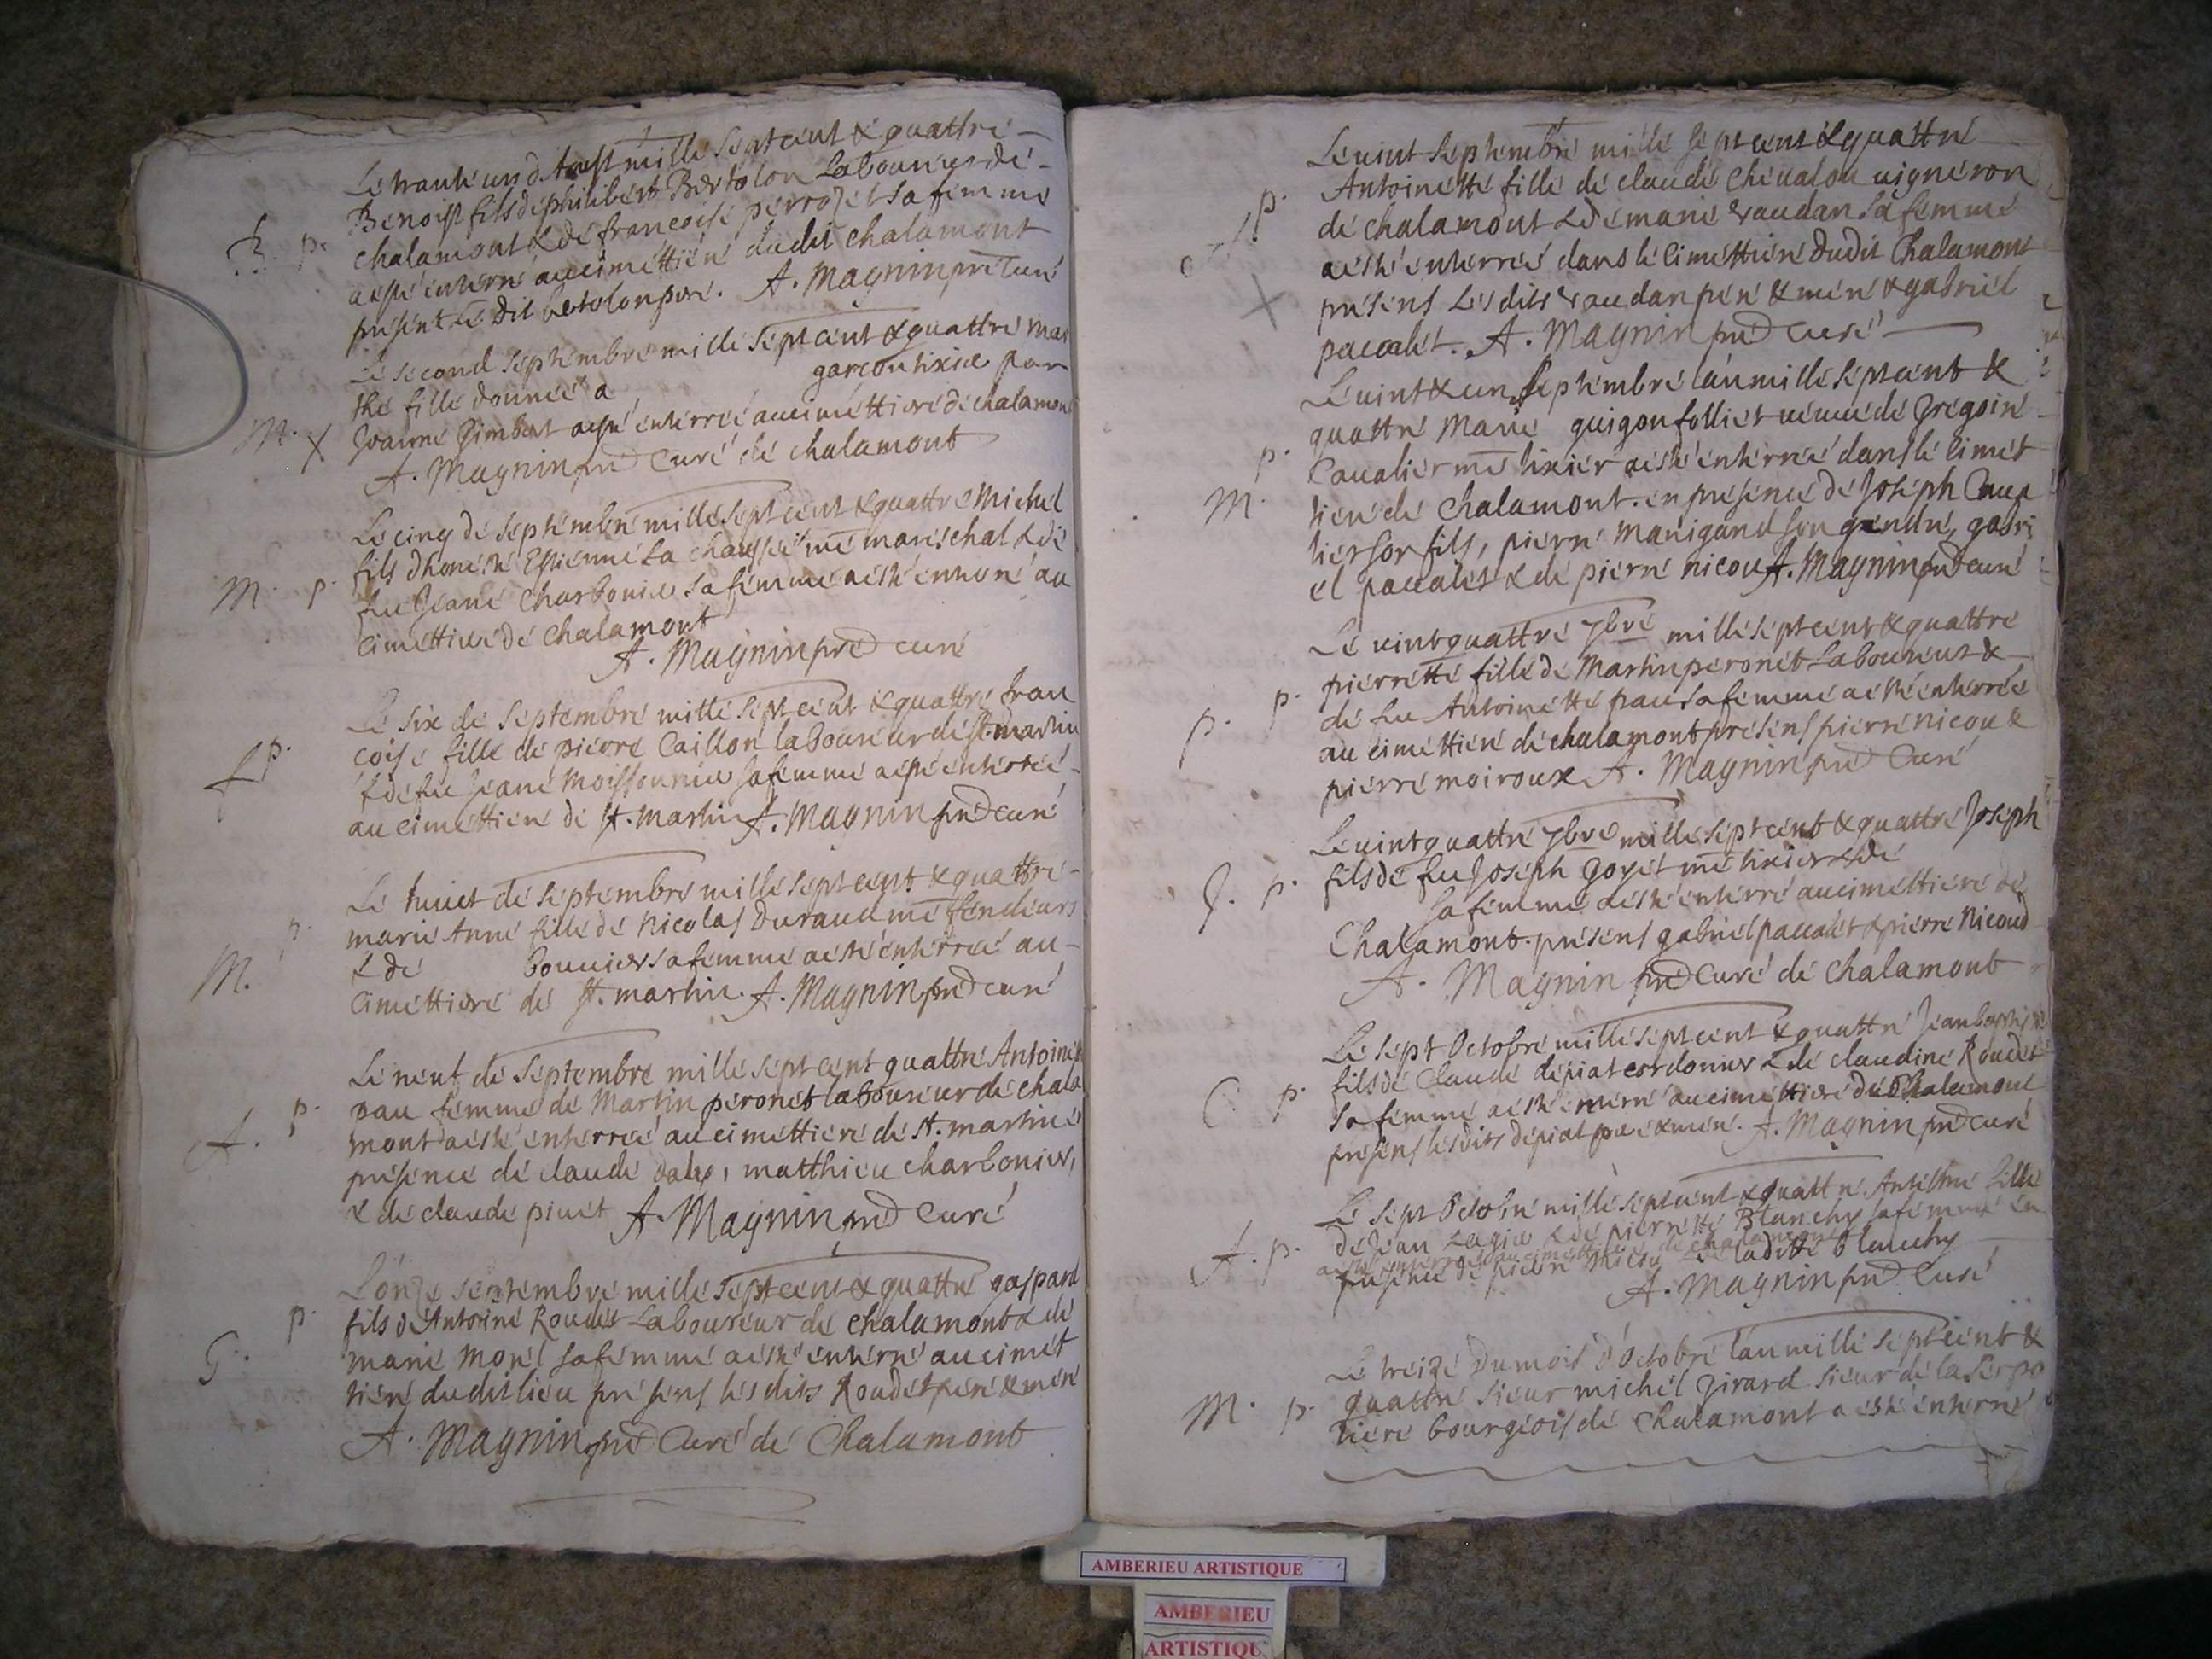 Le trante un d'Aoust mille sept cent & quattre
B. p. Benoist fils de philibert Bertolon Laboureur de
chalamont & de francoise perrozet sa femme
a esté enterré au cimettiere dudit chalamont
présent le dit bertolon pere. A. Magnin pre curé
Le second septembre mille sept cent & quattre mar
the fille donnée a garcon tixier par
M. X Jeanne Gimbert a esté enterreé au cimettiere de chalamont
A. Magnin pre Curé de chalamont
Le cinq de septembre mille sept cent & quattre Michel
M. p. fils d'honeste Estienne La chaussée me mareschal & de
feu Jeane Charbonier sa femme a esté enterré au
cimettiere de chalamont
A. Magnin pre curé
Le six de septembre mille sept cent & quattre fran
f p. coise fille de pierre Caillon laboureur de st. martin
& de feu Jeane Moissonnier sa femme a esté enterreé
au cimettiere de st. martin A. Magnin pre curé
Le huict de septembre mille sept cent & quattre
M. p. marie Anne fille de Nicolas Durand me fendeurs
& de bouvier sa femme a esté enterreé au
cimettiere de st. martin. A. Magnin pre curé
Le neuf de septembre mille sept cent quattre Antoinet
A. p. pau femme de Martin peronet laboureur de chala
mont a esté enterreé au cimettiere de st. martin en
présence de claude , matthieu charbonier,
& de claude pivet A. Magnin pre Curé
L'onze septembre mille sept cent & quattre gaspard
G. p. fils d'Antoine Roudet Laboureur de chalamont & de
marie Monel sa femme a esté enterré au cimet
tiere dudit lieu présens lesdits Roudet pere & mere
A. Magnin pre Curé de Chalamont
Le vint septembre mille sept cent & quattre
A p. Antoinette fille de claude chevalon vigneron
de chalamont & de marie vaudan sa femme
a esté enterreé dans le cimettiere dudit Chalamont
X présens Les dits vaudan pere & mere & gabriel
pacalet. A. Magnin pre Curé
Le vint & un septembre l'an mille sept cent &
quattre Marie guigonfolliet veuve de gregoire
M. p. Cavalier me tixier a esté enterreé dans le cimet
tiere de Chalamont. en présence de Joseph Cava
lier son fils, pierre Manigand son gendre, gabri
el pacalet & de pierre nicou A. Magnin pre curé
Le vint quattre 7bre mille sept cent & quattre
pierrette fille de Martin peronet Laboureur &
p. p. de feu Antoinette pau sa femme a esté enterrée
au cimettiere de chalamont présens pierre nicou &
pierre moiroux A. Magnin pre Curé
Le vint quattre 7bre mille sept cent & quattre Joseph
J. p. fils de feu Joseph goyet me tixier & de
sa femme a esté enterré au cimettiere de
Chalamont. présens gabriel pacalet & pierre Nicoud
A. Magnin pre Curé de Chalamont
Le sept Octobre mille sept cent & quattre Jean baptiste
C. p. fils de Claude depiat cordonier & de claudine Roudet
sa femme a esté enterré au cimettiere de Chalamont
présens lesdits depiat pere & mere. A. Magnin pre curé
Le sept Octobre mille sept cent & quattre Antelme fille
A. p. de Jean Lagier & de pierrette Blanchy sa femme en
a esté enterrée au cimettiere de chalamont
présence de pierre nicou & de laditte blanchy
A. Magnin pre Curé
Le treize du mois d'Octobre l'an mille sept cent &
M. p. quattre sieur michel Girard sieur de la serpo
liere bourgeois de Chalamont a esté enterré
AMBERIEU ARTISTIQUE
AMBERIEU
ARTISTIQU